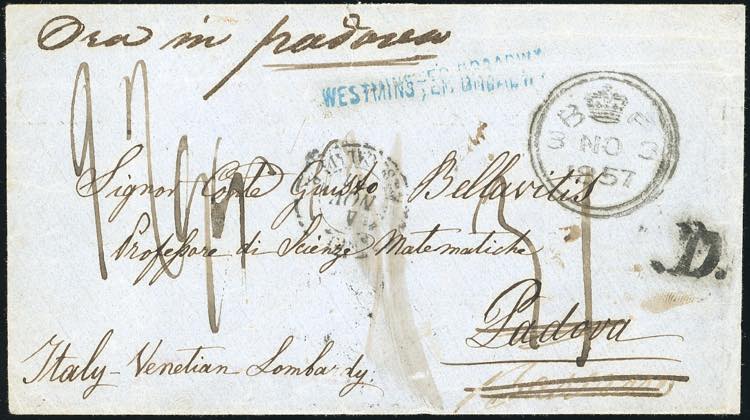 Ora in padova
WESTMINSTER BROADWY
B F
3 NO 3
1857
Signor Conte Giusto Bellavitis
Professore di Scienze Matematiche
D.
Padova
Italy - Venetian Lombardy.